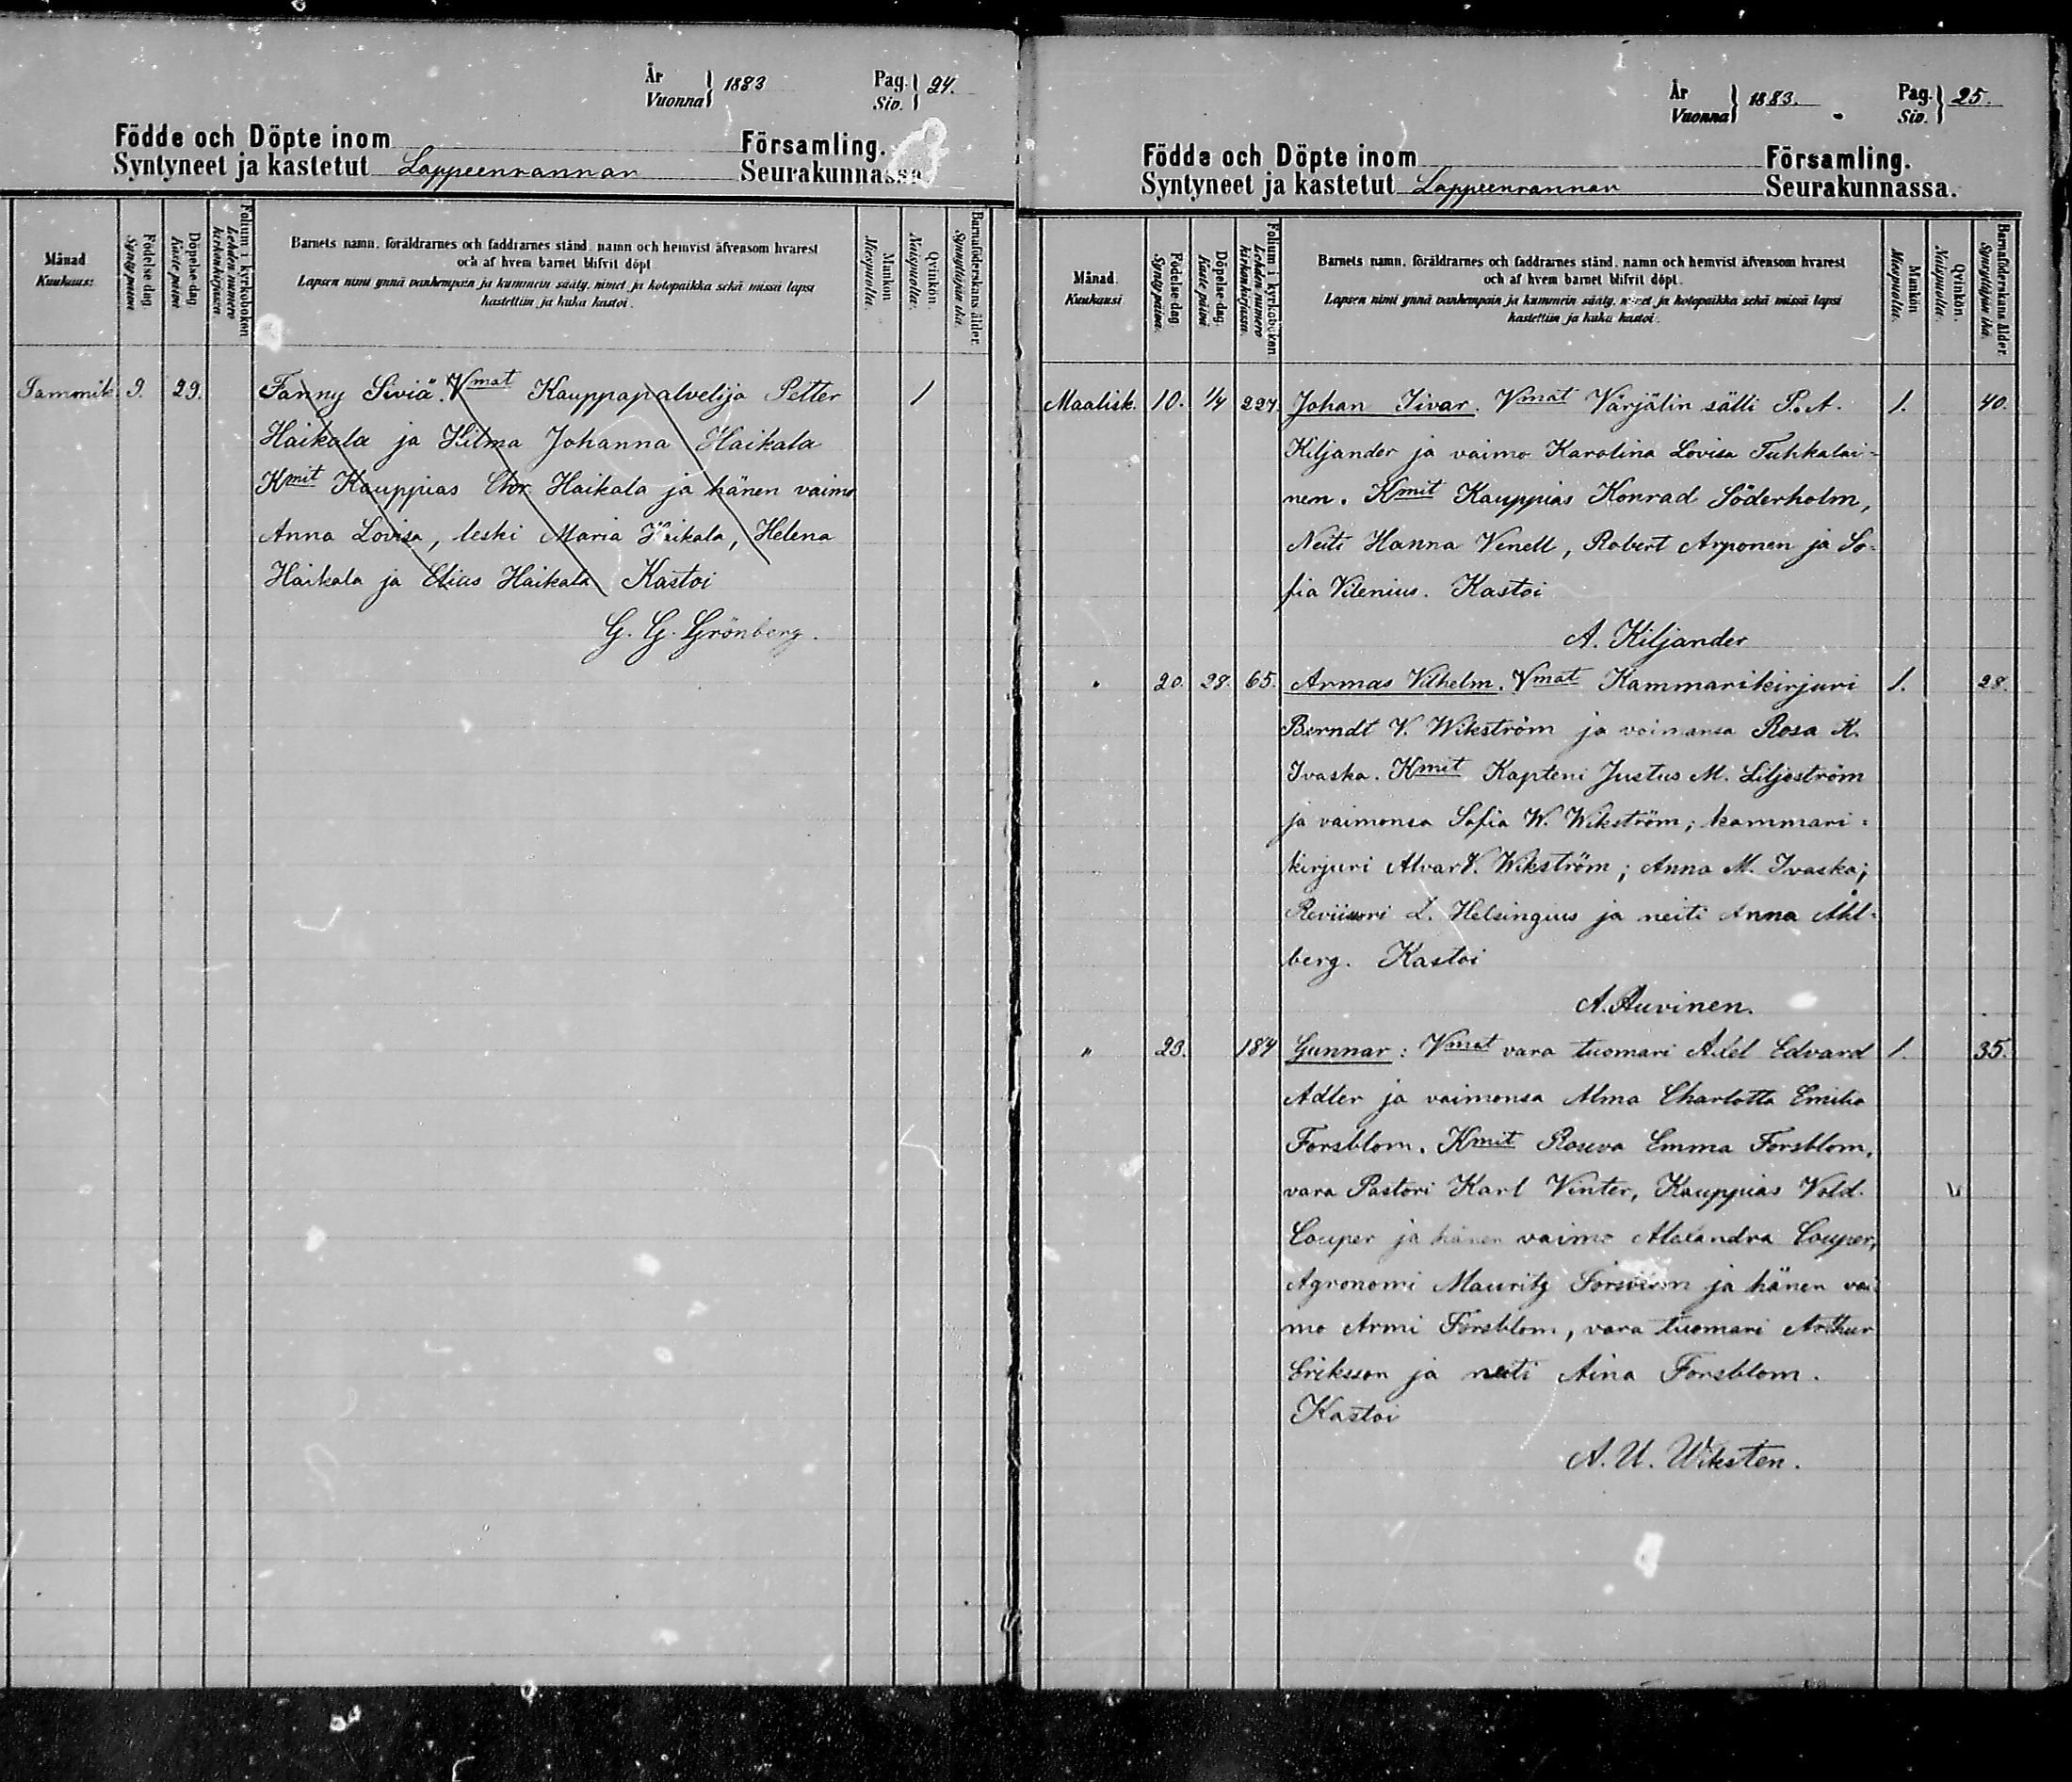 År
Vuonna
1883
Pag.
Siv.
24.
Födde och Döpte inom
Församling.
Syntyneet ja kastetut
Lappeenrannan
Seurakunnassa.
Månad
Kuukausi
Födelse-dag.
Synty päivä
Döpelse-dag.
Kaste päivä
Folium i kyrkoboken
Lehden numero
kirkonkirjassa
Barnets namn, föräldrarnes och faddrarnes stånd, namn och hemvist äfvensom hvarest
och af hvem barnet blifvit döpt
Lapsen nimi ynnä vanhempain ja kummein sääty, nimet ja kotopaikka sekä missä lapsi
kastettiin ja kuka kastoi.
Mankön
Miespuolia.
Qvinkön.
Naispuolia.
Barnaföderskans ålder.
Synnyttäjän ikä.
Tammik. 9. 29. Fanny Siviä. Vmat Kauppapalvelija Petter 1
Haikala ja Hilma Johanna Haikala
Kmit Kauppias Haikala ja hänen vaimo
Anna Lovisa, leski Maria Haikala, Helena
Haikala ja Elias Haikala Kastoi
G. G. Grönberg.
År
Vuonna
1883.
Pag.
Siv.
25.
Födde och Döpte inom
Församling.
Syntyneet ja kastetut
Lappeenrannan
Seurakunnassa.
Månad.
Kuukausi
Födelse-dag.
Synty päivä.
Döpelse-dag.
Kaste päivä
Folium i kyrkoboken
Lehden numero
kirkonkirjassa.
Barnets namn, föräldrarnes och faddrarnes stånd, namn och hemvist äfvensom hvarest
och af hvem barnet blifvit döpt.
Lapsen nimi ynnä vanhempain ja kummein sääty, nimet ja kotopaikka sekä missä lapsi
kastettiin ja kuka kastoi.
Mankön
Miespuolia.
Qvinkön.
Naispuolia.
Barnaföderskans ålder.
Synnyttäjän ikä.
Maalisk. 10. 1/4 227. Johan Iivar. Vmat Värjälin sälli P. A. 1. 40.
Kiljander ja vaimo Karolina Lovisa Tuhkalai-
nen. Kmit Kauppias Konrad Söderholm,
Neiti Hanna Venell, Robert Arponen ja So-
fia Vilenius. Kastoi
A. Kiljander
" 20. 28. 65. Armas Vilhelm. Vmat Kammarikirjuri 1. 28.
Berndt V. Wikström ja vaimonsa Rosa K.
Ivaska. Kmit Kapteni Justus M. Liljeström
ja vaimonsa Sofia W. Wikström; kammari-
kirjuri Alvar V. Wikström; Anna M. Ivaska;
Reviisori L. Helsingius ja neiti Anna Ahl-
berg. Kastoi
A. Auvinen.
" 23. 184 Gunnar: Vmat vara tuomari Axel Edvard 1. 35.
Adler ja vaimonsa Alma Charlotta Emilia
Forsblom. Kmit Rouva Emma Forsblom,
vara Pastori Karl Vinter, Kauppias Vold.
Couper ja hänen vaimo Alexandra Couper,
Agronomi Mauritz ja hänen vai
mo Armi Forsblom, vara tuomari Arthur
Eriksson ja neiti Aina Forsblom.
Kastoi
A. U. Wiksten.